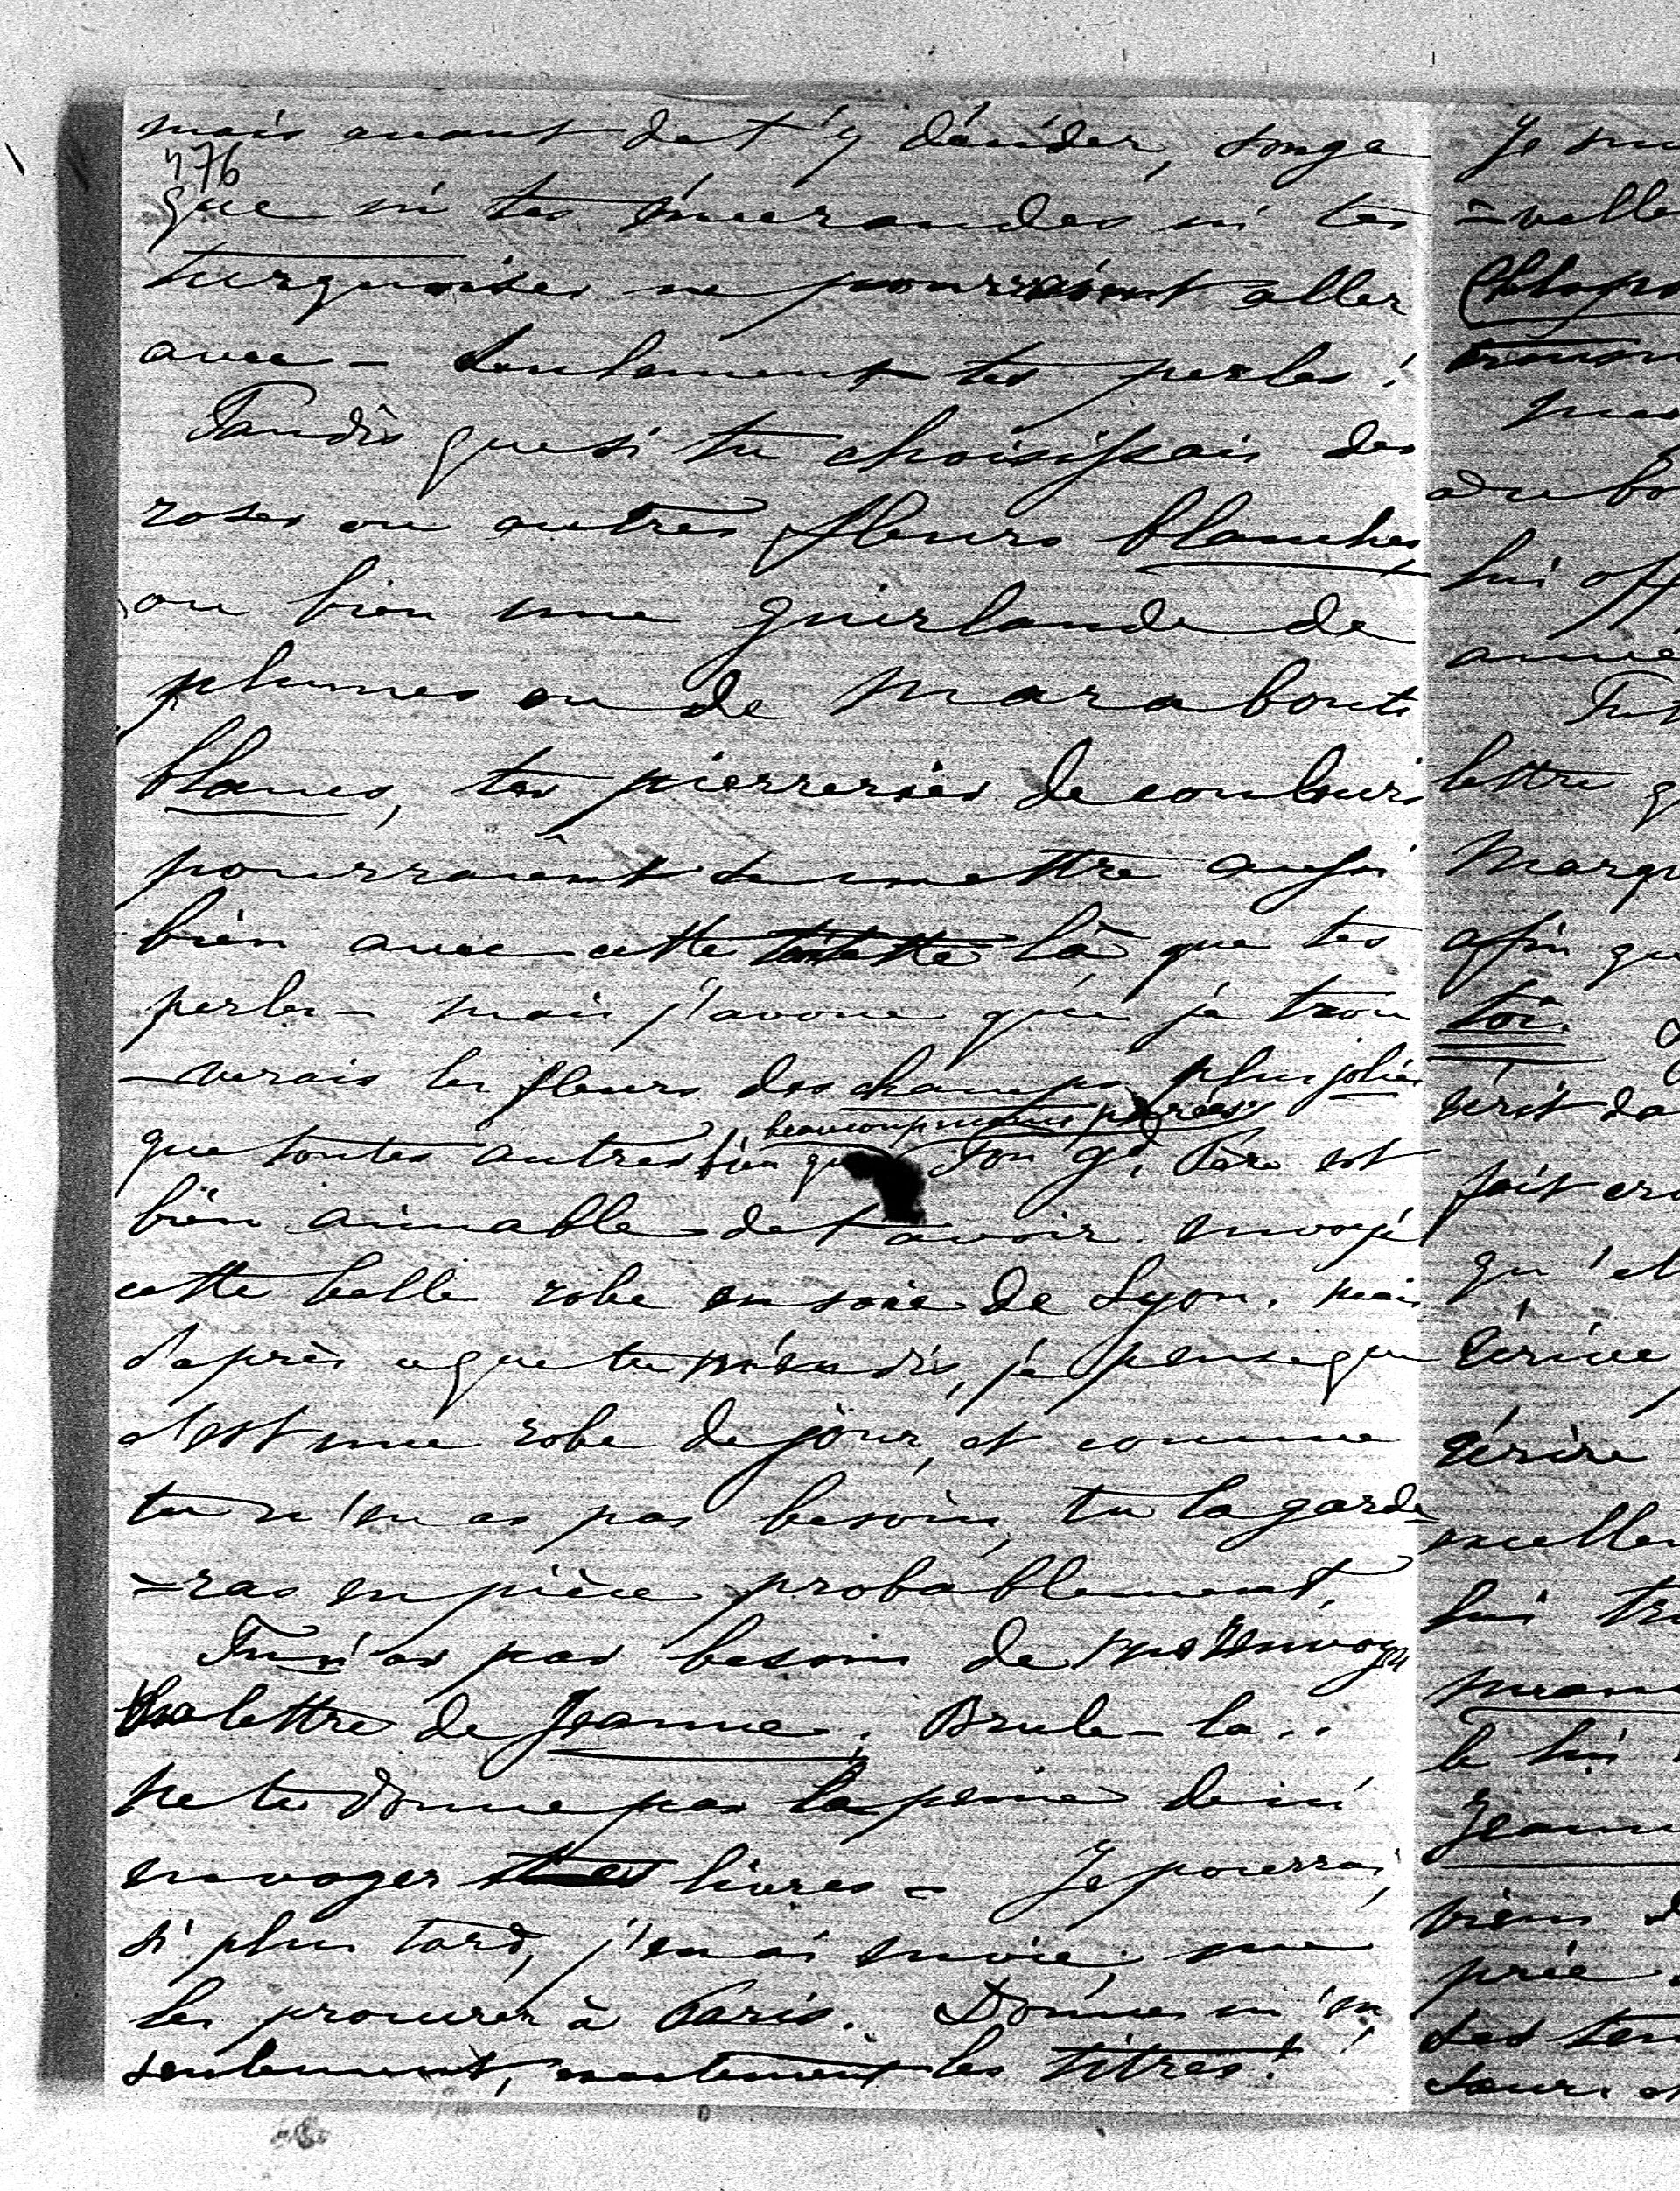 mais avant de t'y décider, songe
476
que ni tes émeraudes ni tes
turquoises ne pourraient aller
avec – seulement tes perles!
Tandis que si tu choisissais des
roses ou autres fleurs blanches
ou bien une guirlande de
plumes ou de marabouts
blancs, tes pierreries de couleurs
pourraient se mettre aussi
bien avec cette toilette là que tes
perles – mais j'avoue que je trou
-verais les fleurs des champs plus jolies
beaucoup moins parées
que toutes autres bien que Ton gd. Père est
bien aimable de t'avoir envoyé
cette belle robe en soie de Lyon. mais
d'après ce que tu m'en dis, je pense que
c'est une robe de jour, et comme
tu n'en as pas besoin, tu la garde
=ras en pièce probablement.
Tu n'as pas besoin de me renvoyer
la lettre de Jeanne. Brule-la..
Ne te donne pas la peine de m'
envoyer tes livres – Je pourrai,
si plus tard, j'en ai envie, me
les procurer à Paris. Donnes m'en
seulement, exactement les titres!
Je
=velle
lui off
lettre
Marqu
afin qu
toi.
écrit da
fait
qu'el
écrive
écrire
lui
le lui
Jeanne
viens
priée
ses